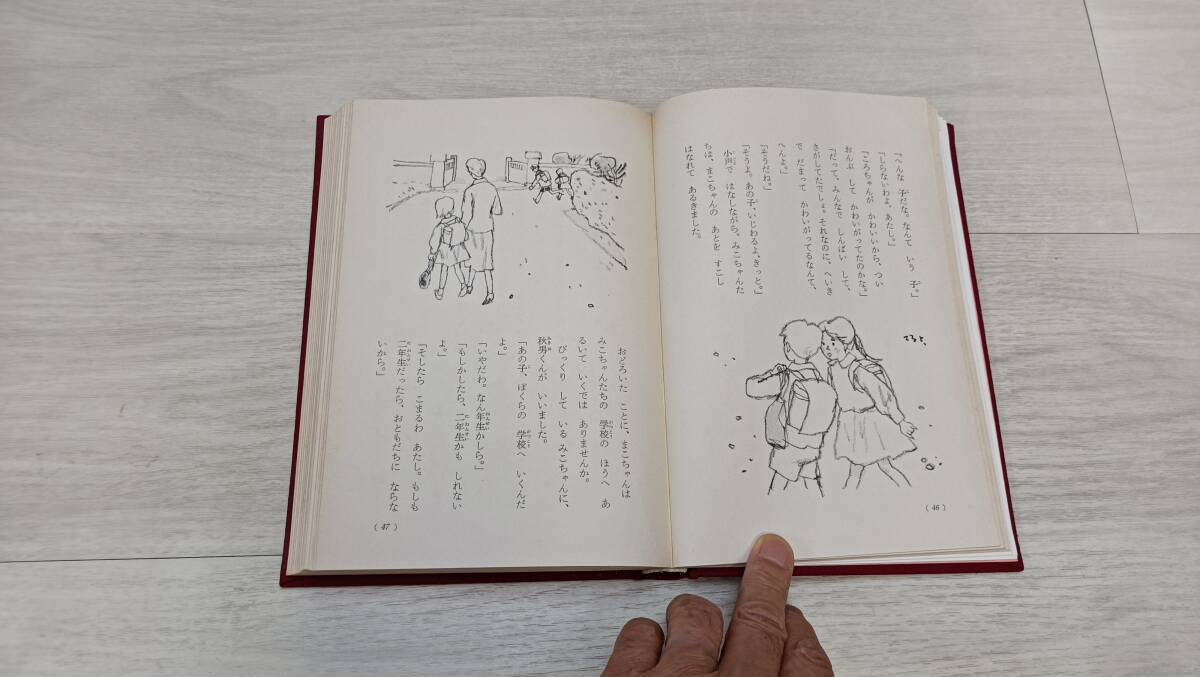 「へんな 子だな。なんて いう 子。」
「しらないわよ、あたし。」
「ころちゃんが かわいいから、つい
おんぶ して かわいがってたのかな。」
「だって、みんなで しんぱい して、
さがしてたでしょ。それなのに、へいき
で だまって かわいがってるなんて、
へんよ。」
「そうだね。」
「そうよ。あの子、いじわるよ、きっと。」
小声で はなしながら、みこちゃんた
ちは、まこちゃんの あとを すこし
はなれて あるきました。
(46)
おどろいた ことに、まこちゃんは
みこちゃんたちの 学校の ほうへ あ
るいて いくでは ありませんか。
びっくり して いる みこちゃんに、
秋男くんが いいました。
「あの子、ぼくらの 学校へ いくんだ
よ。」
「いやだわ。なん年生かしら。」
「もしかしたら、二年生かも しれない
よ。」
「そしたら こまるわ あたし。もしも
二年生だったら、おともだちに ならな
いから。」
(47)